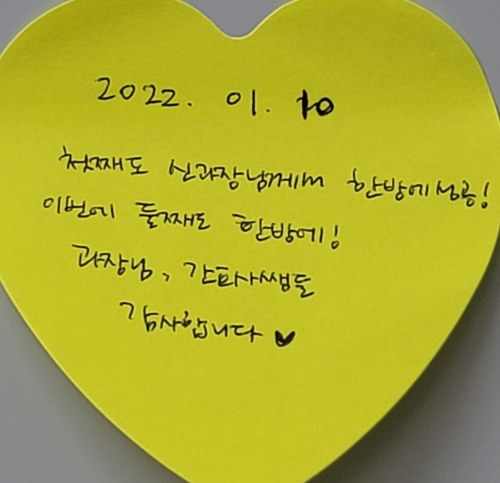 2022. 01. 10
첫째도 신과장님께서 한방에 성공!
이번에 둘째도 한방에!
과장님, 간호사쌤들
감사합니다 ♥